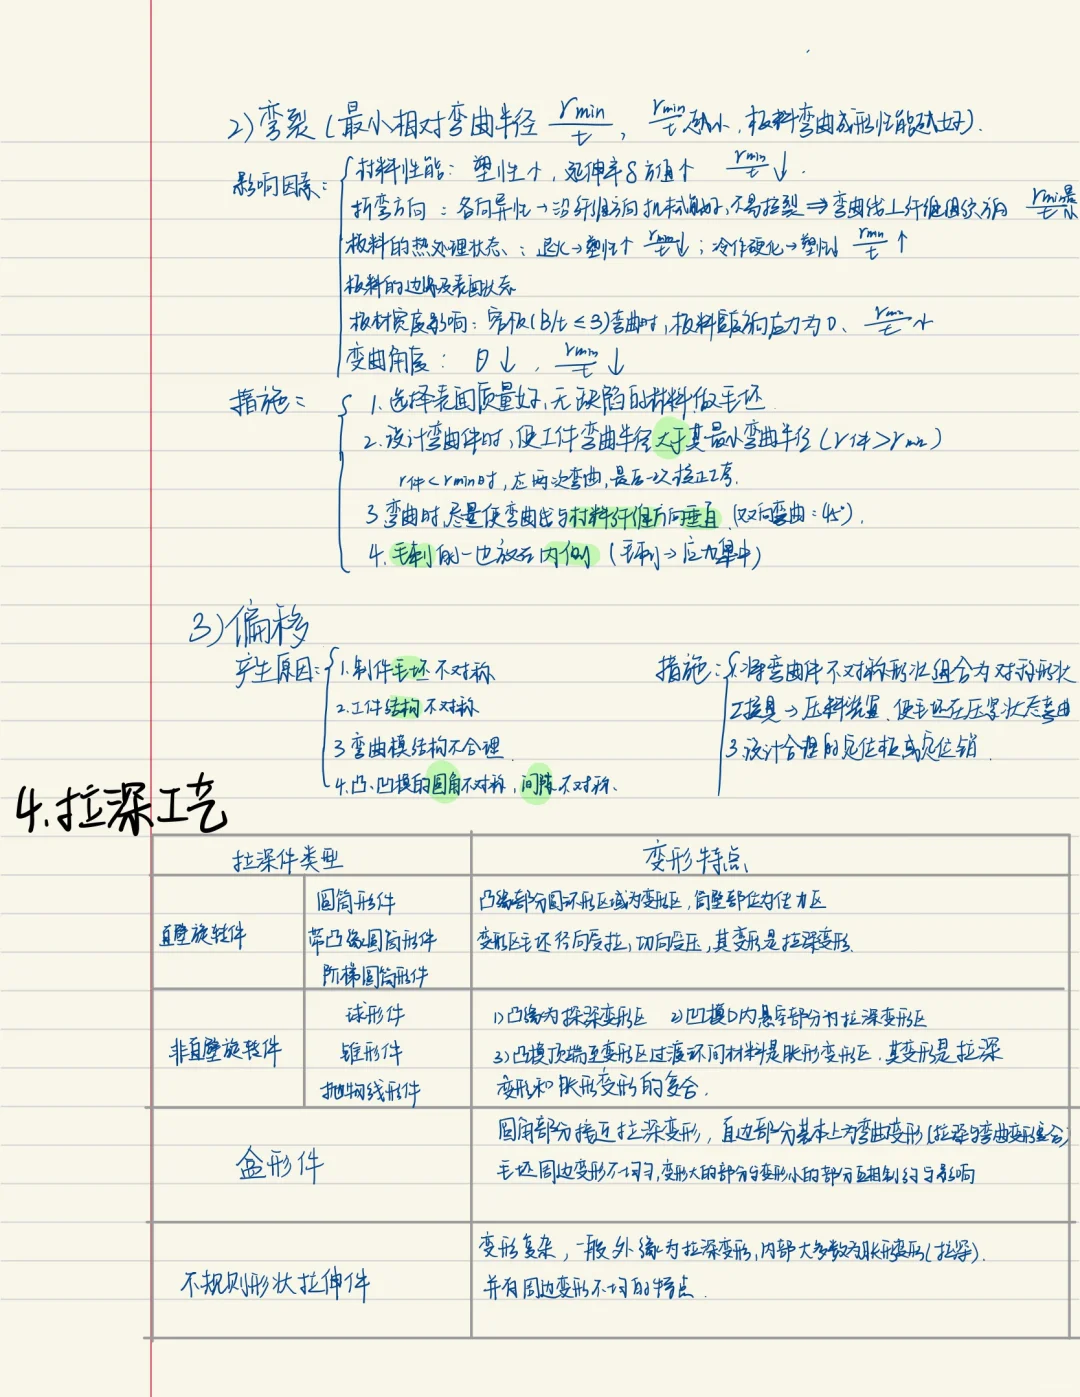 2)弯裂(最小相对弯曲半径 rmin/t, rmin/t越小,板料弯曲成形性能越好).
影响因素:
材料性能: 塑性↑,延伸率δ方值↑ rmin/t↓.
折弯方向:各向异性→沿纤维方向 不易拉裂⇒弯曲线 纤维 rmin/t最小
板料的热处理状态:退火→塑性↑ rmin/t↓;冷作硬化→塑性↓ rmin/t↑
板料的边缘及表面状态
板材宽度影响:窄板(B/t≤3)弯曲时,板料宽度方向应力为0、rmin/t小
弯曲角度: θ↓, rmin/t↓
措施:
1.选择表面质量好,无缺陷的材料做毛坯
2.设计弯曲件时,使工件弯曲半径大于其最小弯曲半径(r件>rmin)
r件<rmin时,应两次弯曲,最后一次校正工序.
3弯曲时,尽量使弯曲线与材料纤维方向垂直(双向弯曲:45°).
4.毛刺的一边放在内侧(毛刺→应力集中)
3)偏移
产生原因:
1.制件毛坯不对称
2.工件结构不对称
3弯曲模结构不合理
4.凸、凹模的圆角不对称,间隙不对称、
措施:
1.将弯曲件不对称形状组合为对称形状
2模具→压料装置、使毛坯在压紧状态弯曲
3.设计合理的定位板或定位销.
4.拉深工艺
拉深件类型 变形特点
直壁旋转件
圆筒形件
带凸缘圆筒形件
阶梯圆筒形件
凸缘部分圆环形区域为变形区,筒壁部位为传力区
变形区毛坯径向受拉,切向受压,其变形是拉深变形.
非直壁旋转件
球形件
锥形件
抛物线形件
1)凸缘为探深变形区 2)凹模口内悬空部分为拉深变形区
3)凸模顶端至变形区过渡环间材料是胀形变形区.其变形是拉深
变形和胀形变形的复合.
盒形件
圆角部分接近拉深变形,直边部分基本上为弯曲变形(拉深与弯曲变形复合)
毛坯周边变形不均匀,变形大的部分与变形小的部分互相制约与影响
不规则形状拉伸件
变形复杂,一般外缘为拉深变形,内部大多数为胀形变形(拉深).
并有周边变形不均的特点.